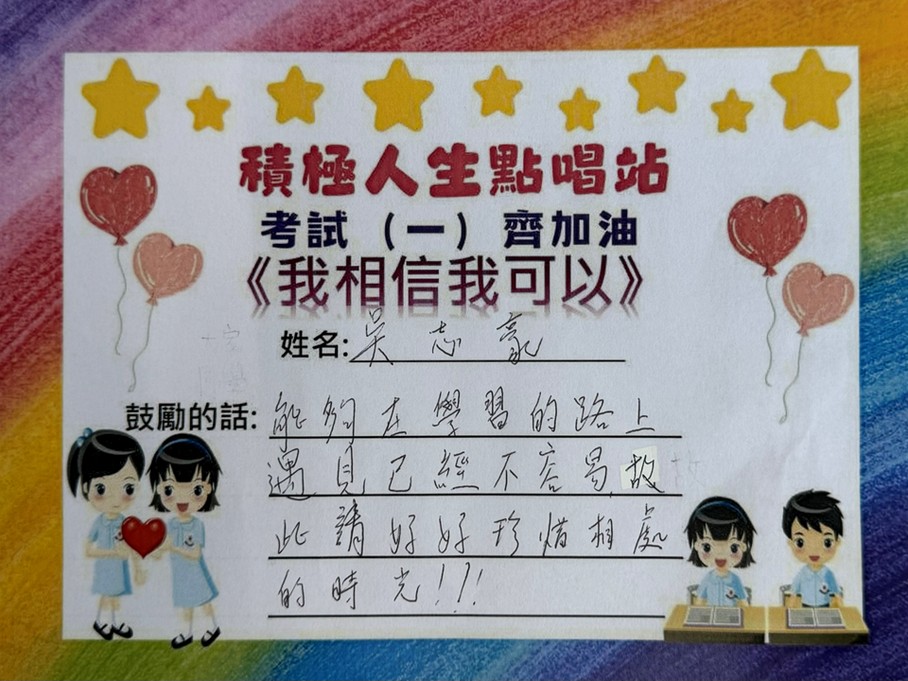 積極人生點唱站
考試（一）齊加油
《我相信我可以》
姓名:吳志豪
鼓勵的話:能夠在學習的路上
遇見已經不容易,故
此請好好珍惜相處
的時光!!!